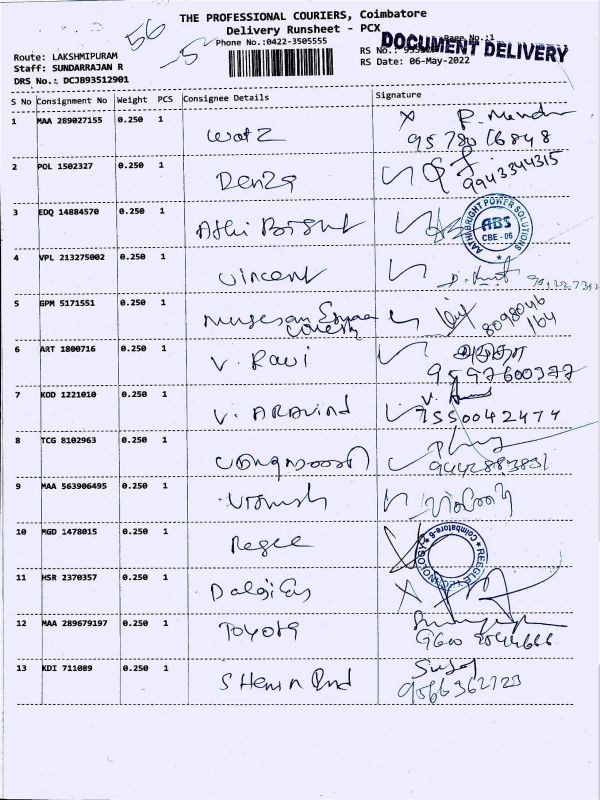 THE PROFESSIONAL COURIERS, Coimbatore
Delivery Runsheet - PCX
Phone No.:0422-3505555
Page No.:1
DOCUMENT DELIVERY
56
-5
Route: LAKSHMIPURAM
Staff: SUNDARRAJAN R
DRS No.: DCJB93512901
RS No.:
RS Date: 06-May-2022
S No Consignment No Weight PCS Consignee Details Signature
1 MAA 289027155 0.250 1 Watz
95780 16848
2 POL 1502327 0.250 1 Denza
9943344315
3 EDQ 14884570 0.250 1 Athi Bright
AATHI BRIGHT POWER SOLUTIONS
ABS
CBE - 06
4 VPL 213275002 0.250 1 Vincent
5 GPM 5171551 0.250 1
8098046
164
6 ART 1800716 0.250 1 V. Ravi
9597600377
7 KOD 1221010 0.250 1 V. ARAVind
7550042474
8 TCG 8102963 0.250 1
9442883831
9 MAA 563906495 0.250 1
10 MGD 1478015 0.250 1 Regee
REEGLE TECHNOLOGY
Coimbatore-6
11 HSR 2370357 0.250 1
12 MAA 289679197 0.250 1 Toyota
13 KDI 711089 0.250 1
9566362723